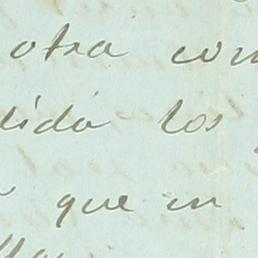 otra con
dida los
que en